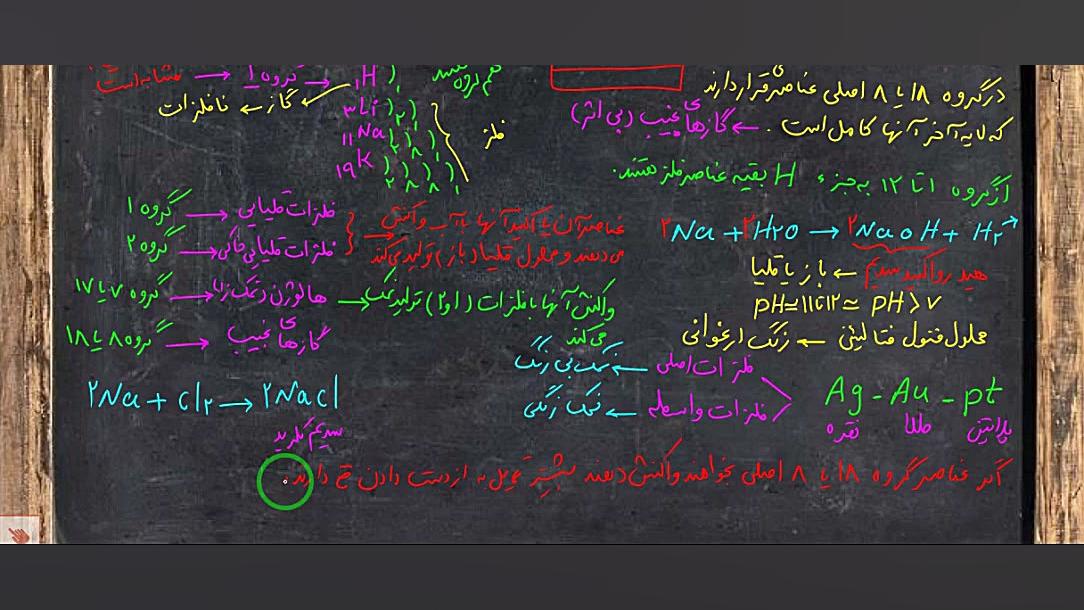 در گروه ۱۸ یا ۸ اصلی عناصر قرار دارند
که لایه آخر آنها کامل است. ← گازهای نجیب (بی اثر)
از گروه ۱ تا ۱۲ به جزء H بقیه عناصر فلز هستند.
۲Na + ۲H۲O → ۲NaOH + H۲
هیدروکسید سدیم ← باز یا قلیا
pH ≃ ۱۱ تا ۱۲ ≃ pH > ۷
محلول فنول فتالئین ← رنگ ارغوانی
فلزات اصلی ← نمک بی رنگ
فلزات واسطه ← نمک رنگی
Ag - Au - pt
نقره طلا پلاتین
۱H گروه ۱ مشابه است
گاز ← نافلزات
۳Li ) ۲ ) ۱
۱۱Na ) ۲ ) ۸ ) ۱
۱۹K ) ۲ ) ۸ ) ۸ ) ۱
فلز
گروه ۱ ← فلزات قلیایی
گروه ۲ ← فلزات قلیایی خاکی
عناصر آن یا اکسید آنها با آب واکنش
می دهند و محلول قلیا (باز) تولید می کند
گروه ۷ یا ۱۷ ← هالوژن (نمک زا) → واکنش آنها با فلزات (۱ و ۲) تولید نمک
می کند
گروه ۸ یا ۱۸ ← گازهای نجیب
۲Na + Cl۲ → ۲NaCl
سدیم کلرید
اگر عناصر گروه ۱۸ یا ۸ اصلی بخواهند واکنش دهند بیشتر تمایل به از دست دادن دارند.